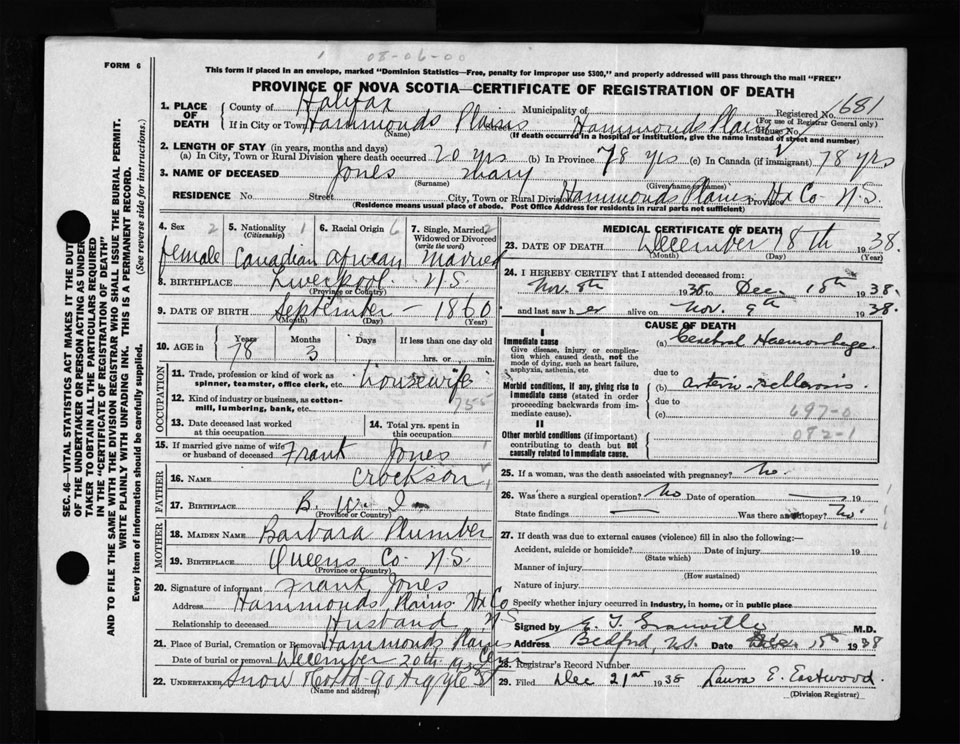 08-06-00
FORM 6
This form if placed in an envelope, marked "Dominion Statistics—Free, penalty for improper use $300," and properly addressed will pass through the mail "FREE"
PROVINCE OF NOVA SCOTIA—CERTIFICATE OF REGISTRATION OF DEATH
1. PLACE OF DEATH
County of Halifax Municipality of Registered No. 1681
(For use of Registrar General only)
If in City or Town Hammonds Plains Hammonds Plains House No.
(Name) (If death occurred in a hospital or institution, give the name instead of street and number)
2. LENGTH OF STAY (in years, months and days)
(a) In City, Town or Rural Division where death occurred 20 yrs (b) In Province 78 yrs (c) In Canada (if immigrant) 78 yrs
3. NAME OF DECEASED Jones Mary
(Surname) (Given name or names)
RESIDENCE No. Street City, Town or Rural Division Hammonds Plains Province Hx Co N.S.
(Residence means usual place of abode. Post Office Address for residents in rural parts not sufficient)
4. Sex 2 5. Nationality 1 6. Racial Origin 6 7. Single, Married, 2
(Citizenship) Widowed or Divorced
(write the word)
female Canadian African Married
8. BIRTHPLACE Liverpool N.S.
(Province or Country)
9. DATE OF BIRTH September – 1860
(Month) (Day) (Year)
10. AGE in Years Months Days If less than one day old
78 3 hrs. or min.
OCCUPATION
11. Trade, profession or kind of work as
spinner, teamster, office clerk, etc. housewife
12. Kind of industry or business, as cotton-
mill, lumbering, bank, etc. 755
13. Date deceased last worked
at this occupation
14. Total yrs. spent in
this occupation
15. If married give name of wife
or husband of deceased Frank Jones
FATHER
16. NAME Crockson
17. BIRTHPLACE B. W. I
(Province or Country)
MOTHER
18. MAIDEN NAME Barbara Plumber
19. BIRTHPLACE Queens Co N.S.
(Province or Country)
20. Signature of informant Frank Jones
Address Hammonds Plains Hx Co
N.S
Relationship to deceased Husband
21. Place of Burial, Cremation or Removal Hammonds Plains
Date of burial or removal December 20th 1938
22. UNDERTAKER Snow 90 Argyle St
(Name and address)
MEDICAL CERTIFICATE OF DEATH
23. DATE OF DEATH December 18th 1938.
(Month) (Day) (Year)
24. I HEREBY CERTIFY that I attended deceased from:
Nov. 8th 1938 to Dec. 18th 1938.
and last saw her alive on Nov. 9th 1938.
CAUSE OF DEATH
I
Immediate cause
Give disease, injury or complication which caused death, not the mode of dying, such as heart failure, asphyxia, asthenia, etc
(a) Cerebral Haemorrhage.
due to
Morbid conditions, if any, giving rise to immediate cause (stated in order proceeding backwards from immediate cause).
(b) arterio-sclerosis.
due to
(c)
697-0
082-1
II
Other morbid conditions (if important) contributing to death but not causally related to immediate cause.
25. If a woman, was the death associated with pregnancy? No.
26. Was there a surgical operation? No Date of operation 19
State findings Was there an autopsy? No.
27. If death was due to external causes (violence) fill in also the following:—
Accident, suicide or homicide? Date of injury 19
(State which)
Manner of injury
(How sustained)
Nature of injury
Specify whether injury occurred in industry, in home, or in public place
Signed by E. T. Granville M.D.
Address Bedford, N.S. Date 1938
28. Registrar's Record Number
29. Filed Dec 21st 1938 Laura E. Eastwood.
(Division Registrar)
SEC. 46—VITAL STATISTICS ACT MAKES IT THE DUTY
OF THE UNDERTAKER OR PERSON ACTING AS UNDER-
TAKER TO OBTAIN ALL THE PARTICULARS REQUIRED
IN THE "CERTIFICATE OF REGISTRATION OF DEATH"
AND TO FILE THE SAME WITH THE DIVISION REGISTRAR WHO SHALL ISSUE THE BURIAL PERMIT.
WRITE PLAINLY WITH UNFADING INK. THIS IS A PERMANENT RECORD.
Every item of information should be carefully supplied. (See reverse side for instructions.)